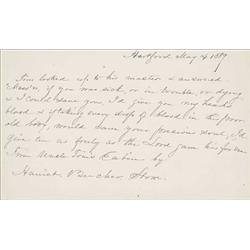 Hartford May 4 1889
Tom looked up to his master & answered
Mas'r, if you was sick, or in trouble, or dying
& I could save you, I'd give you my heart's
blood & if taking every drop of blood in this poor
old body, would save your precious soul, I'd
give em as freely as the Lord gave his for me
From Uncle Tom's Cabin by
Harriet Beecher Stowe